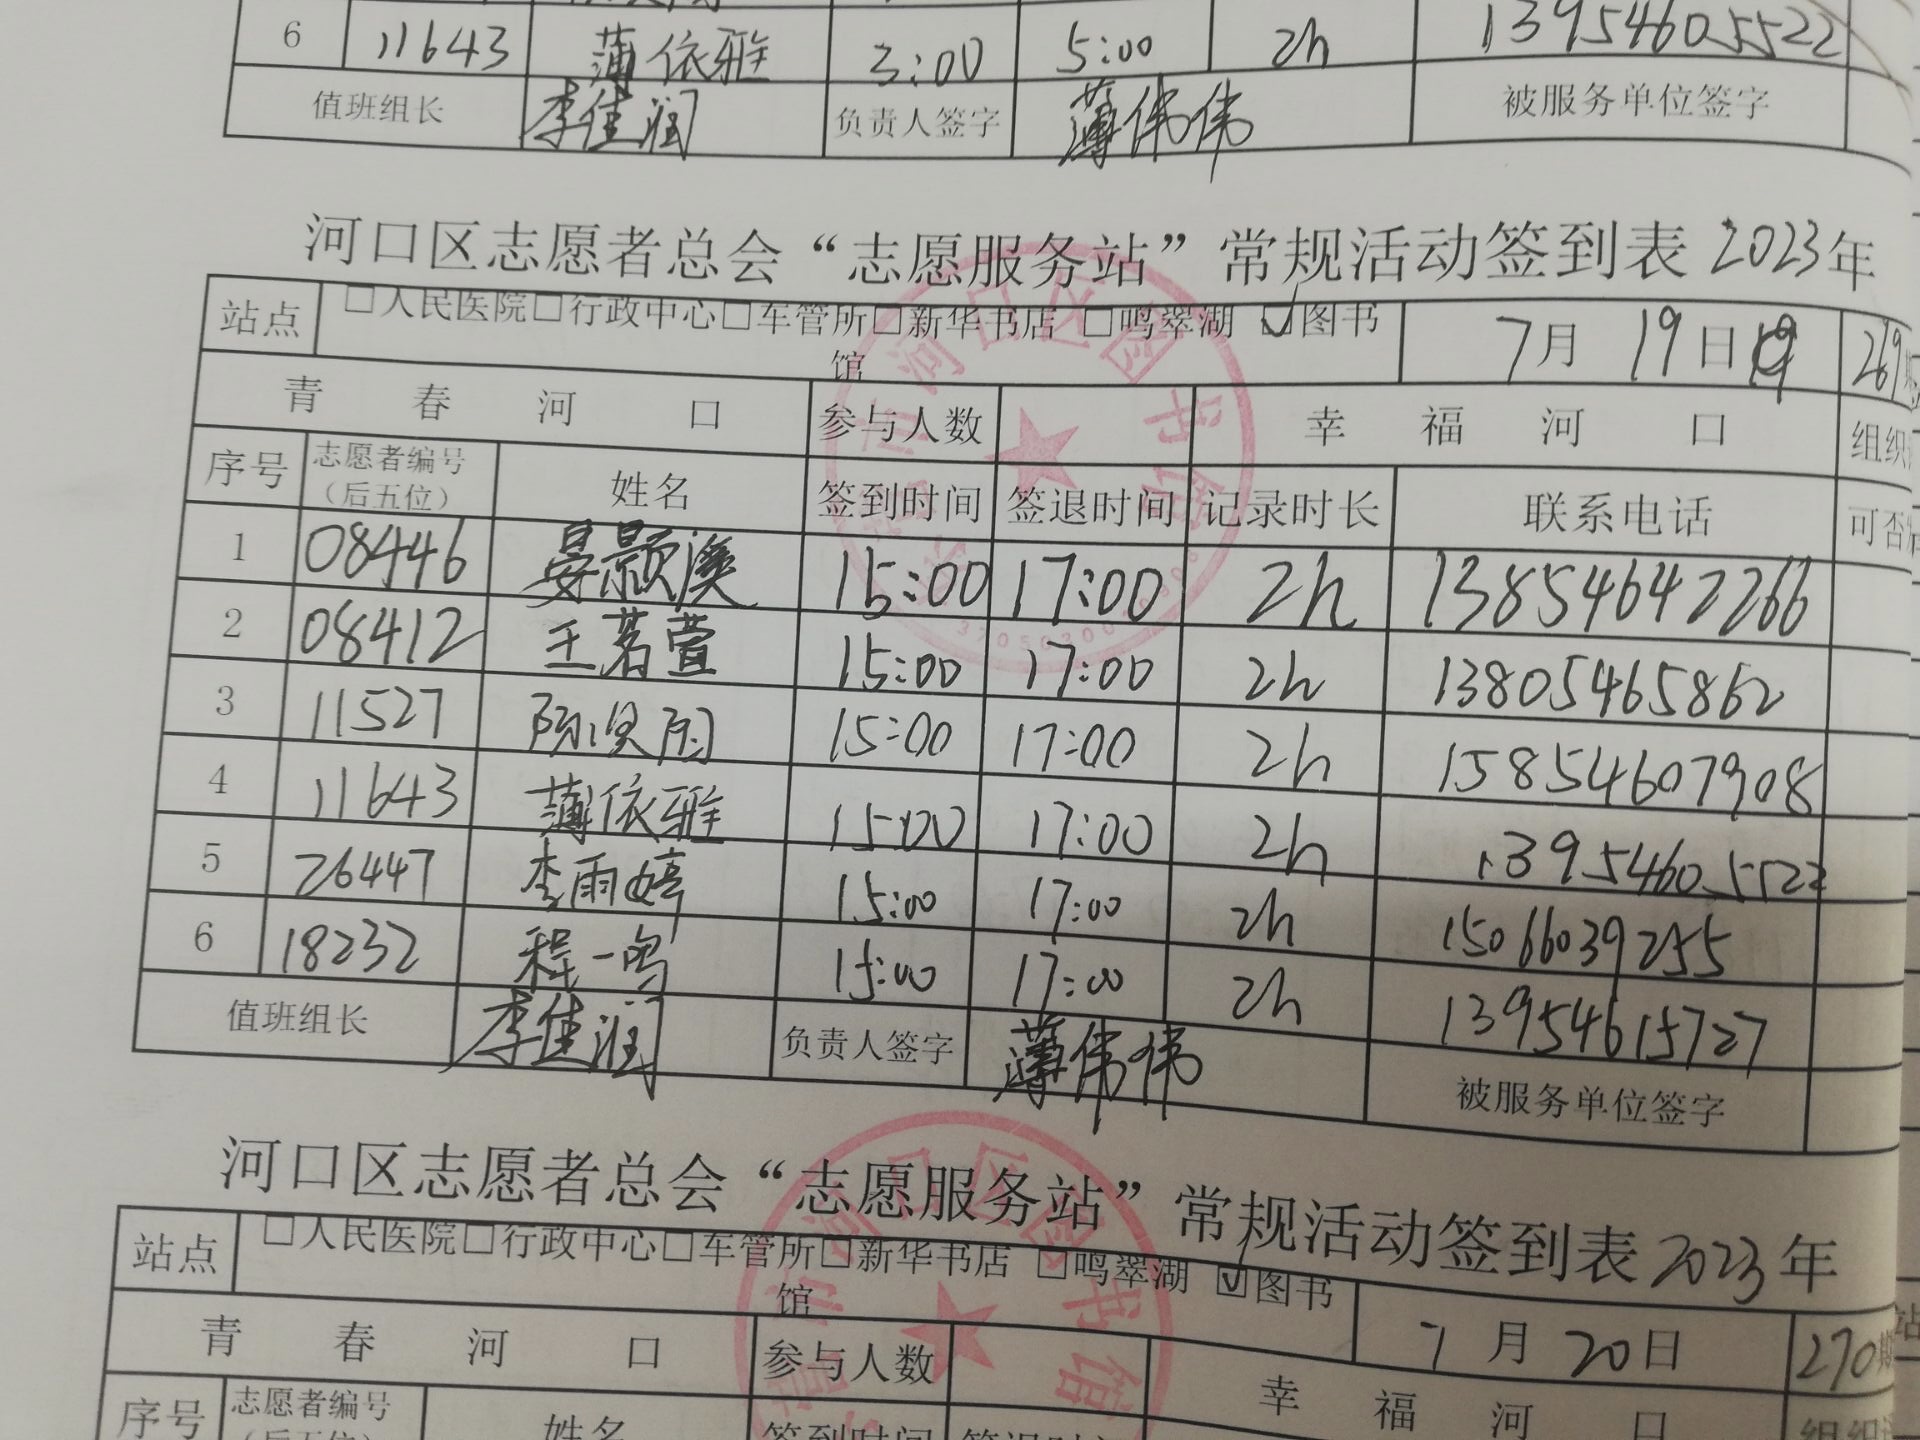 6 11643 薄依雅 3:00 5:00 2h 13954605522
值班组长 李佳润 负责人签字 薄伟伟 被服务单位签字
河口区志愿者总会“志愿服务站”常规活动签到表 2023年
站点 □人民医院□行政中心□车管所□新华书店 □鸣翠湖 ☑图书馆 7月 19日 269
青 春 河 口 参与人数 幸 福 河 口 组织
序号 志愿者编号（后五位） 姓名 签到时间 签退时间 记录时长 联系电话 可否
1 08446 晏颢溪 15:00 17:00 2h 13854642266
2 08412 王茗萱 15:00 17:00 2h 13805465862
3 11527 15:00 17:00 2h 15854607908
4 11643 薄依雅 15:00 17:00 2h 13954605522
5 26447 李雨婷 15:00 17:00 2h 15066039255
6 18232 程一鸣 15:00 17:00 2h 13954615727
值班组长 李佳润 负责人签字 薄伟伟 被服务单位签字
河口区志愿者总会“志愿服务站”常规活动签到表 2023年
站点 □人民医院□行政中心□车管所□新华书店 □鸣翠湖 ☑图书馆 7月 20日 270期
青 春 河 口 参与人数 幸 福 河 口 组织
序号 志愿者编号 姓名 签到时间 签退时间